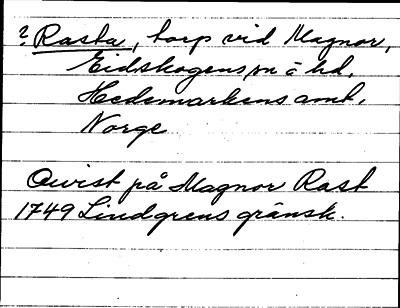 ? Rasta, torp vid Magnor,
Eidskogens
Hedemarkens amt,
Norge
Qvist på Magnor Rast
1749 Lindgrens gränsk.